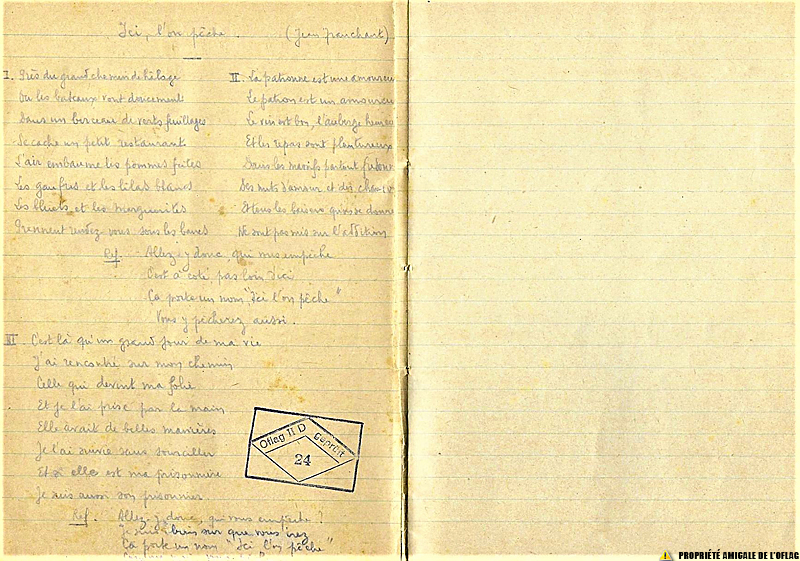 Ici, l'on pêche. (Jean Tranchant)
I. Près du grand chemin de hâlage
Où les bateaux vont doucement
Dans un berceau de verts feuillages
Se cache un petit restaurant
L'air embaume les pommes frites
Les gaufres et les lilas blancs
Les bluets et les marguerites
Prennent rendez-vous sous les bancs
II. La patronne est une amoureu
Le patron est un amoureu
Le vin est bon, l'auberge heureu
Et les repas sont plantureux
Dans les massifs partout
Des nuits d'amour et des
Et tous les baisers qu'on se donne
Ne sont pas mis sur l'addition
Ref. Allez-y donc, qui vous empêche
C'est à côté, pas loin d'ici
Ça porte un nom "Ici l'on pêche"
Vous y pêcherez aussi.
III C'est là qu'un grand jour de ma vie
J'ai rencontré sur mon chemin
Celle qui devint ma folie
Et je l'ai prise par la main
Elle avait de belles manières
Je l'ai suivie sans sourciller
Et si elle est ma prisonnière
Je suis aussi son prisonnier
Oflag II D
Geprüft
24
Ref. Allez-y donc, qui vous empêche ?
Je suis bien sur que vous irez
Ça porte un nom "Ici l'on pêche"
PROPRIÉTÉ AMICALE DE L'OFLAG